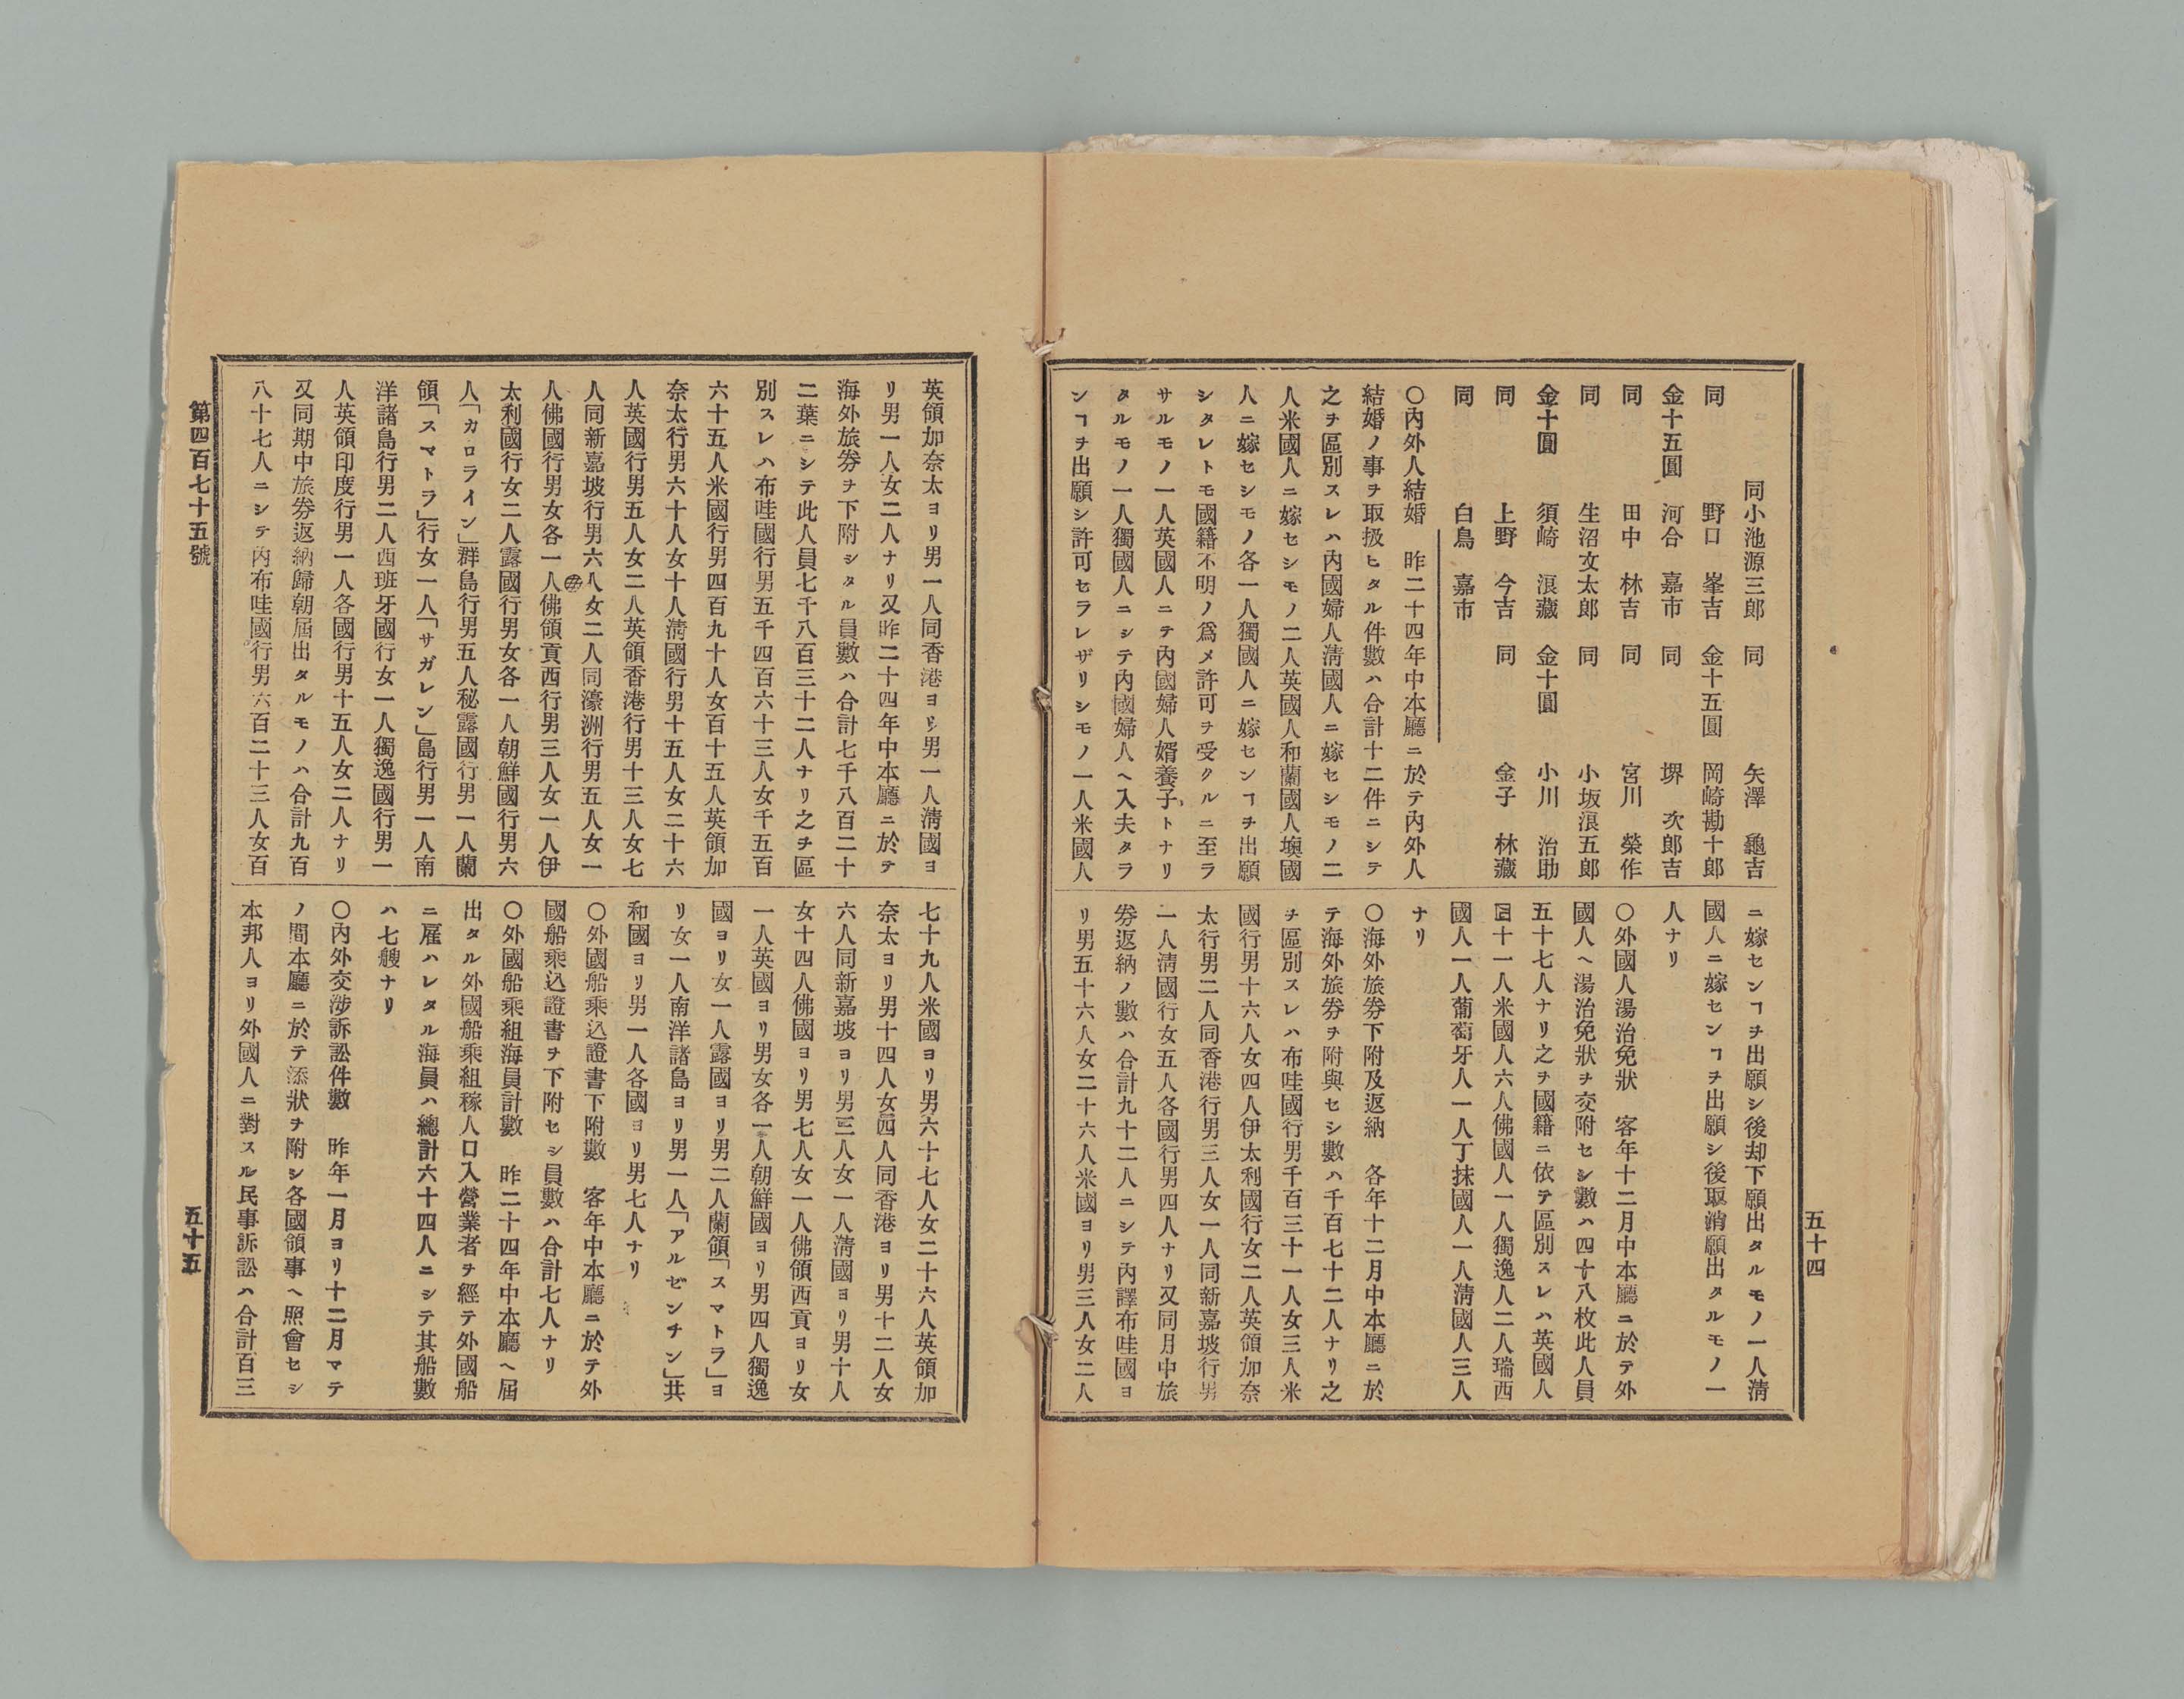 五十四
同小池源三郎　同　矢澤　龜吉
同　野口　峯吉　金十五圓　岡崎勘十郎
金十五圓　河合　嘉市　同　堺　次郎吉
同　田中　林吉　同　宮川　榮作
同　生沼攵太郎　同　小坂浪五郎
金十圓　須崎　浪藏　金十圓　小川　治助
同　上野　今吉　同　金子　林藏
同　白鳥　嘉市
〇內外人結婚　昨二十四年中本廳ニ於テ內外人
結婚ノ事ヲ取扱ヒタル件數ハ合計十二件ニシテ
之ヲ區別スレハ內國婦人淸國人ニ嫁セシモノ二
人米國人ニ嫁セシモノ二人英國人和蘭國人墺國
人ニ嫁セシモノ各一人獨國人ニ嫁センヿヲ出願
シタレトモ國籍不明ノ爲メ許可ヲ受クルニ至ラ
サルモノ一人英國人ニテ內國婦人婿養子トナリ
タルモノ一人獨國人ニシテ內國婦人ヘ入夫タラ
ンヿヲ出願シ許可セラレザリシモノ一人米國人
ニ嫁センヿヲ出願シ後却下願出タルモノ一人淸
國人ニ嫁センヿヲ出願シ後取消願出タルモノ一
人ナリ
〇外國人湯治免狀　客年十二月中本廳ニ於テ外
國人ヘ湯治免狀ヲ交附セシ數ハ四十八枚此人員
五十七人ナリ之ヲ國籍ニ依テ區別スレハ英國人
四十一人米國人六人佛國人一人獨逸人二人瑞西
國人一人葡萄牙人一人丁抹國人一人淸國人三人
ナリ
〇海外旅券下附及返納　各年十二月中本廳ニ於
テ海外旅券ヲ附與セシ數ハ千百七十二人ナリ之
ヲ區別スレハ布哇國行男千百三十一人女三人米
國行男十六人女四人伊太利國行女二人英領加奈
太行男二人同香港行男三人女一人同新嘉坡行男
一人淸國行女五人各國行男四人ナリ又同月中旅
券返納ノ數ハ合計九十二人ニシテ內譯布哇國ヨ
リ男五十六人女二十六人米國ヨリ男三人女二人
英領加奈太ヨリ男一人同香港ヨリ男一人淸國ヨ
リ男一人女二人ナリ又昨二十四年中本廳ニ於テ
海外旅券ヲ下附シタル員數ハ合計七千八百二十
二葉ニシテ此人員七千八百三十二人ナリ之ヲ區
別スレハ布哇國行男五千四百六十三人女千五百
六十五人米國行男四百九十人女百十五人英領加
奈太行男六十人女十人淸國行男十五人女二十六
人英國行男五人女二人英領香港行男十三人女七
人同新嘉坡行男六人女二人同濠洲行男五人女一
人佛國行男女各一人佛領貢西行男三人女一人伊
太利國行女二人露國行男女各一人朝鮮國行男六
人「カロライン」群島行男五人秘露國行男一人蘭
領「スマトラ」行女一人「サガレン」島行男一人南
洋諸島行男二人西班牙國行女一人獨逸國行男一
人英領印度行男一人各國行男十五人女二人ナリ
又同期中旅券返納歸朝屆出タルモノハ合計九百
八十七人ニシテ內布哇國行男六百二十三人女百
七十九人米國ヨリ男六十七人女二十六人英領加
奈太ヨリ男十四人女四人同香港ヨリ男十二人女
六人同新嘉坡ヨリ男三人女一人淸國ヨリ男十人
女十四人佛國ヨリ男七人女一人佛領西貢ヨリ女
一人英國ヨリ男女各一人朝鮮國ヨリ男四人獨逸
國ヨリ女一人露國ヨリ男二人蘭領「スマトラ」ヨ
リ女一人南洋諸島ヨリ男一人「アルゼンチン」共
和國ヨリ男一人各國ヨリ男七人ナリ
〇外國船乘込證書下附數　客年中本廳ニ於テ外
國船乘込證書ヲ下附セシ員數ハ合計七人ナリ
〇外國船乘組海員計數　昨二十四年中本廳ヘ屆
出タル外國船乘組稼人口入營業者ヲ經テ外國船
ニ雇ハレタル海員ハ總計六十四人ニシテ其船數
ハ七艘ナリ
〇內外交涉訴訟件數　昨年一月ヨリ十二月マテ
ノ間本廳ニ於テ添狀ヲ附シ各國領事ヘ照會セシ
本邦人ヨリ外國人ニ對スル民事訴訟ハ合計百三
第四百七十五號
五十五